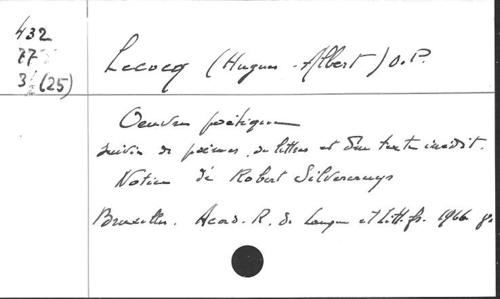 432
Lecocq (Hugues-Albert) O.P.
3 (25)
Oeuvres poétiques
suivies de poèmes, de lettres et d'un texte inédit.
Notice de Robert Silvercruys
Bruxelles. Acad. R. de langue et litt. fr. 1966